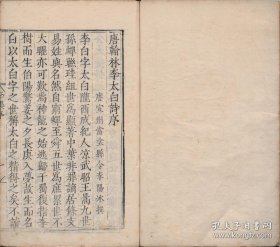 唐翰林李太白詩序
唐宣州當塗縣令李陽冰撰
李白字太白隴西成紀人涼武昭王暠九世
孫蟬聯珪組世為顯著中葉非罪謫居條支
易姓與名然自窮蟬至舜五世為庶累世不
大曜亦可歎焉神龍之始逃歸于蜀復指李
樹而生伯陽驚姜之夕長庚入夢故生而名
白以太白字之世稱太白之精得之矣不讀